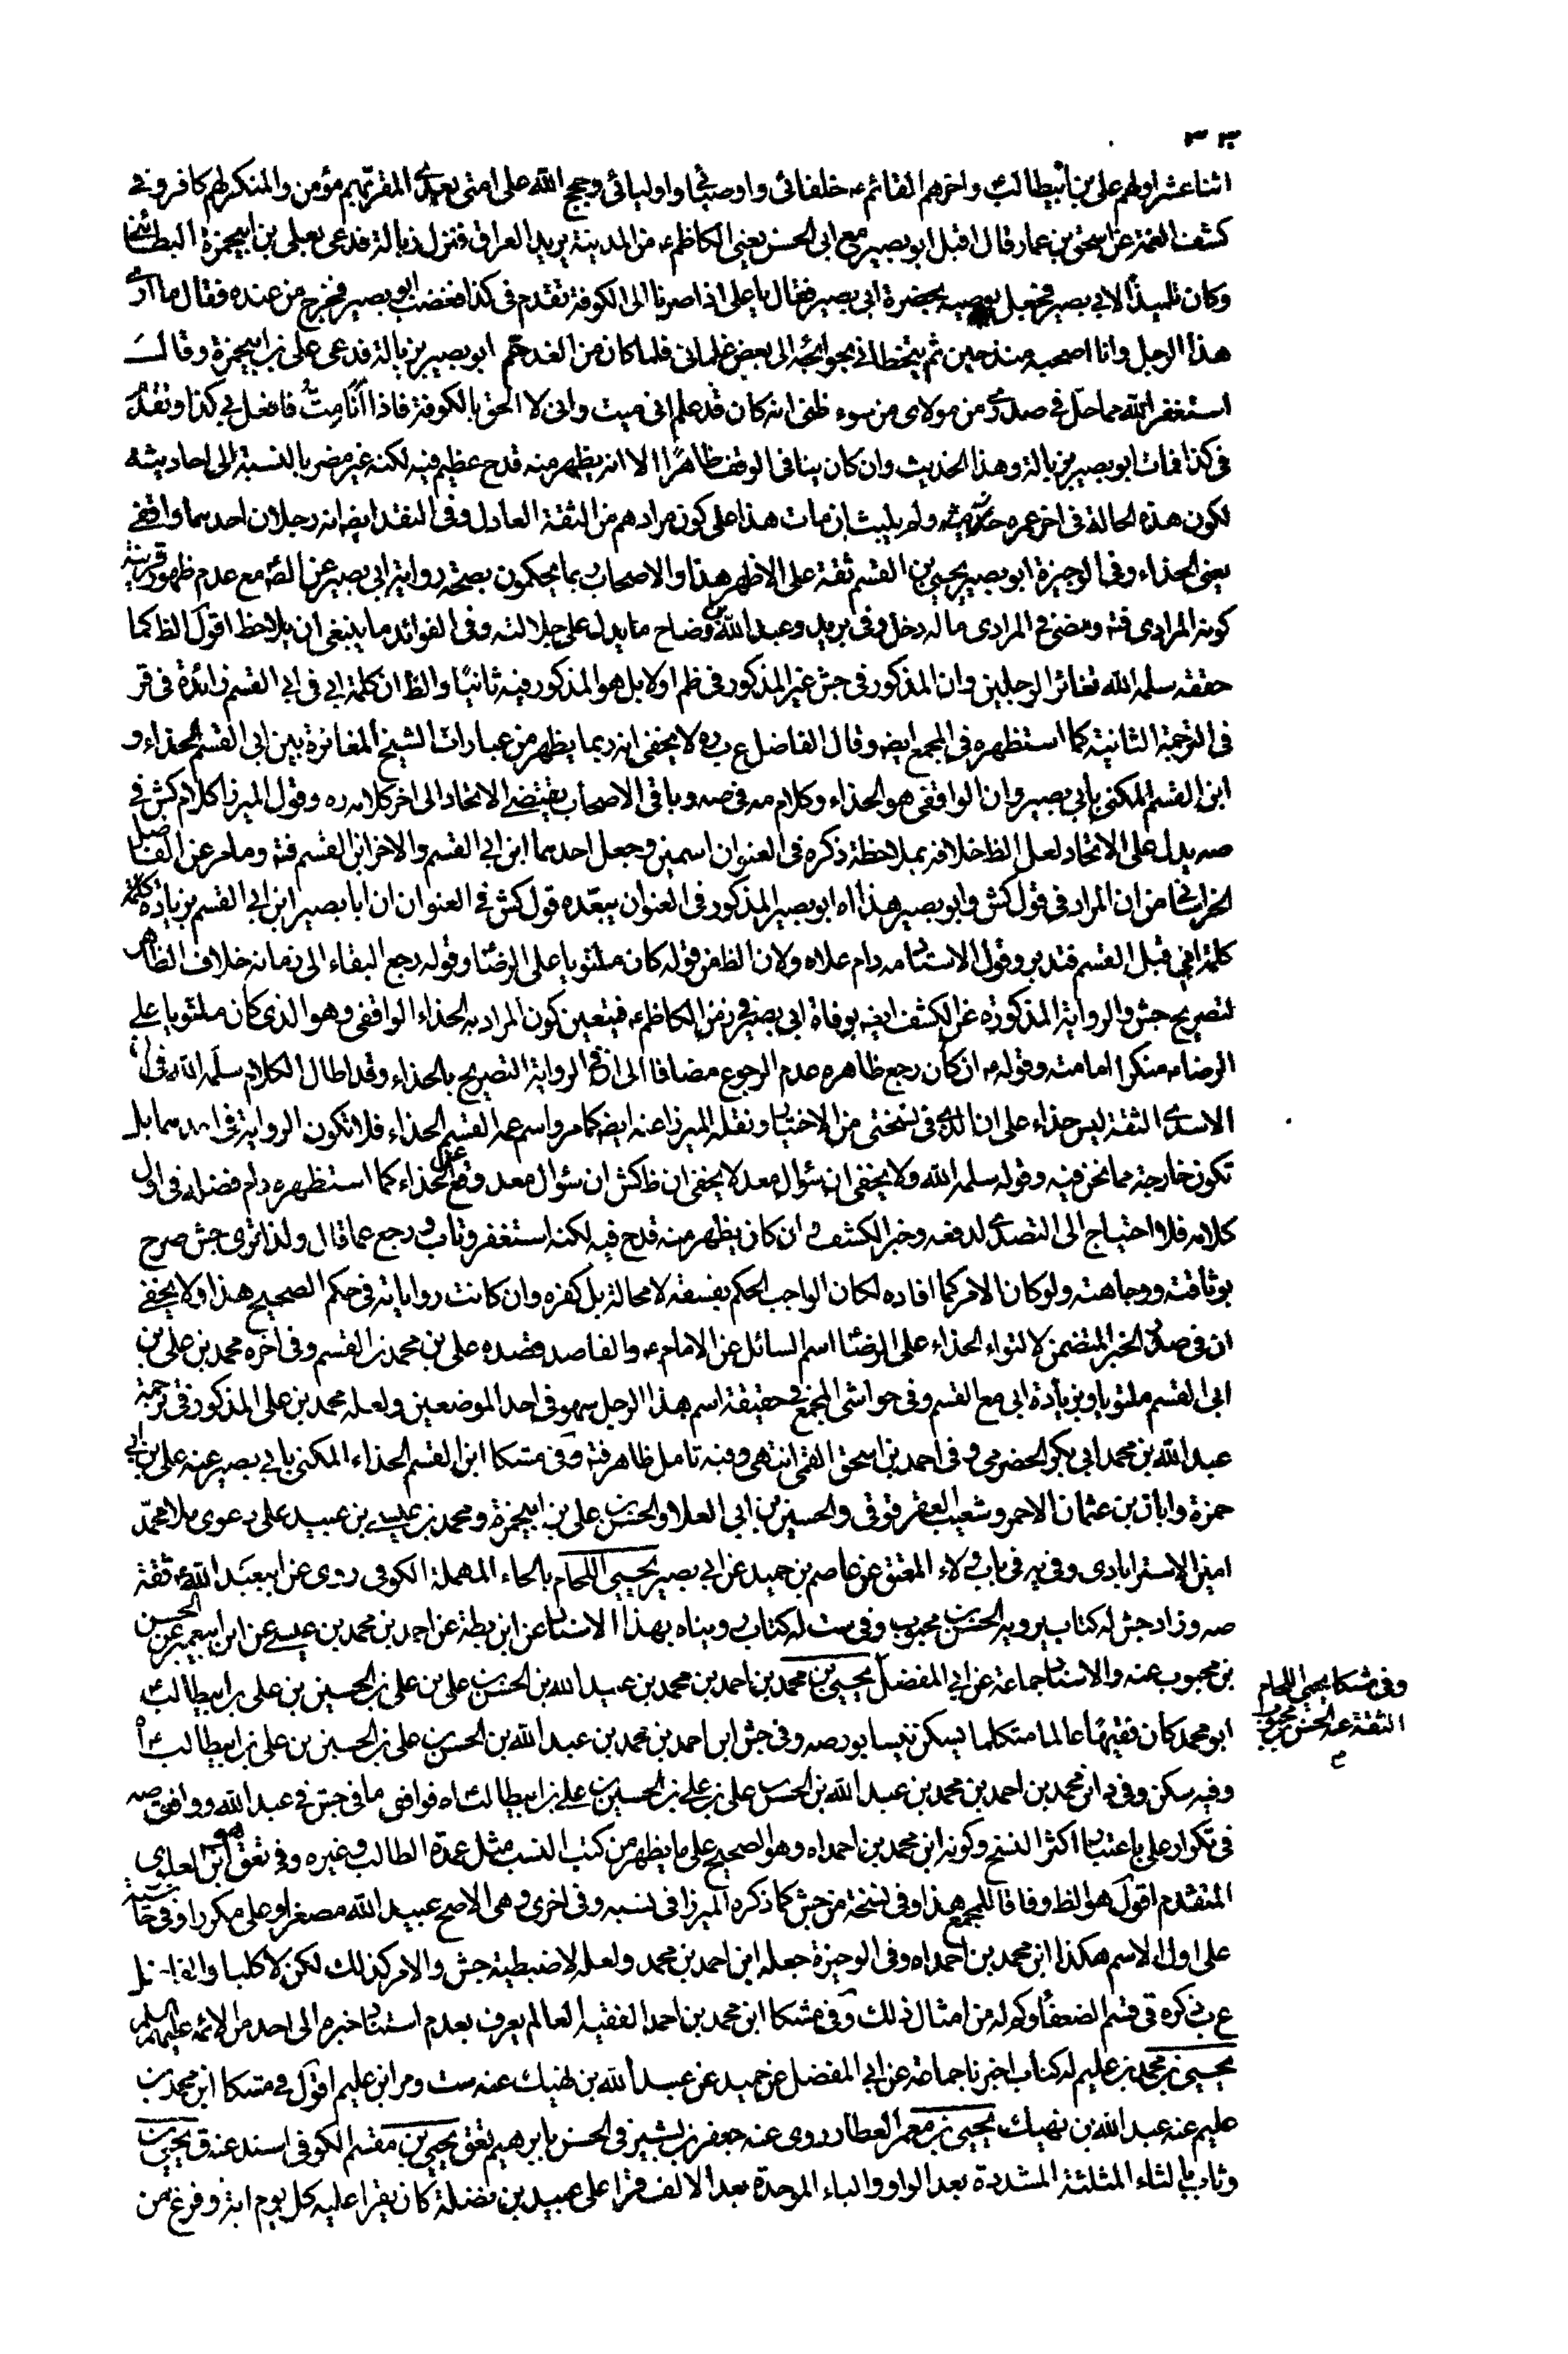 ٣٣
اثنا عشر اولهم على بن ابيطالب ع واخرهم القائم ع خلفائى واوصيائى واوليائى وحجج الله على امتى بعدى المقر بهم مؤمن والمنكر لهم كافر وفى
كشف الغمة عن اسحق بن عمار قال اقبل ابو بصير مع ابى الحسن يعنى الكاظم ع من المدينة يريد العراق فنزل زبالة فدعى بعلى بن ابيحمزة البطائنى
وكان تلميذا لابى بصير فجعل يوصيه بحضرة ابى بصير فقال يا على اذا صرنا الى الكوفة تقدم فى كذا فغضب ابو بصير فخرج من عنده فقال ما ارى
هذا الرجل وانا اصحبه منذ حين ثم يتخطانى بحوائجه الى بعض غلمانى فلما كان من الغد حم ابو بصير بزبالة فدعى على بن ابيحمزة وقال
استغفر الله مما حل فى صدرى من مولاى من سوء ظنى انه كان قد علم انى ميت وانى لا الحق بالكوفة فاذا انا مت فافعل بى كذا وتقدم
فى كذا فمات ابو بصير بزبالة وهذا الحديث وان كان ينافى الوقف ظاهرا الا انه يظهر منه قدح عظيم فيه لكنه غير مضر بالنسبة الى احاديثه
لكون هذه الحالة فى اخر عمره ولم يلبث ان مات هذا على كون مرادهم من الثقة العادل وفى النقد ايضا انه رجلان احدهما واقفى
يعنى الحذاء وفى الوجيزة ابو بصير يحيى بن القسم ثقة على الاظهر هذا والاصحاب ربما يحكمون بصحة رواية ابى بصير عن الصه مع عدم ظهور قرينة
كونه المرادى فته ومضى فى المرادى ما له دخل وفى بريد وعبد الله بن وضاح ما يدل على جلالته وفى الفوائد ما ينبغى ان يلاحظ اقول الظ كما
حققه سلمه الله تغاير الرجلين وان المذكور فى جش غير المذكور فى ظم اولا بل هو المذكور فيه ثانيا والظ ان كلمة ابى فى ابى القسم زائدة فى قر
فى الترجمة الثانية كما استظهره فى المجمع ايضا وقال الفاضل ع ب ره لا يخفى انه ربما يظهر من عبارات الشيخ المغايرة بين ابى القسم الحذاء و
ابن القسم المكنى بابى بصير وان الواقفى هو الحذاء وكلامه فى صه وباقى الاصحاب يقتضى الاتحاد الى اخر كلامه ره وقول الميرزا كلام كش فى
صه يدل على الاتحاد لعل الظ خلافه بملاحظة ذكره فى العنوان اسمين وجعل احدهما ابن ابى القسم والاخر ابن القسم فته وما مر عن الفاضل
الخراسانى من ان المراد فى قول كش وابو بصير هذا اه ابو بصير المذكور فى العنوان يبعده قول كش فى العنوان ان ابا بصير ابن ابى القسم بزيادة كلمة
كلمة ابى قبل القسم فتدبر وقول الاستاد دام علاه ولان الظ من قوله كان ملتويا على الرضا ع وقوله رجع البقاء الى زمانه خلاف الظاهر
لتصريح جش والرواية المذكورة عن الكشف ايضه بوفاة ابى بصير فى زمن الكاظم ع فيتعين كون المراد به الحذاء الواقفى وهو الذى كان ملتويا على
الرضا ع منكرا امامته وقوله مه ان كان رجع ظاهره عدم الرجوع مضافا الى ان فى الرواية التصريح بالحذاء وقد اطال الكلام سلمه الله فى ان
الاسدى الثقة ليس حذاء على ان الذى فى نسختى من الاختيار ونقله الميرزا عنه ايضه كما مر واسم عم القسم الحذاء فلا تكون الرواية فى احدهما بل
تكون خارجة مما نحن فيه وقوله سلمه الله ولا يخفى ان سؤال معد لا يخفى ان ظ كش ان سؤال معد وقع عن الحذاء كما استظهره دام فضله فى اول
كلامه فلا احتياج الى التصدى لدفعه وخبر الكشف وان كان يظهر منه قدح فيه لكنه استغفر وتاب ورجع عما قال ولذا ترى جش صرح
بوثاقته ووجاهته ولو كان الامر كما افاده لكان الواجب الحكم بفسقه لا محالة بل كفره وان كانت رواياته فى حكم الصحيح هذا ولا يخفى
ان فى صدر الخبر المتضمن لالتواء الحذاء على الرضا ع اسم السائل عن الامام ع والقاصد قصده على بن محمد بن القسم وفى اخره محمد بن على بن
ابى القسم ملتويا وبزيادة ابى مع القسم وفى حواشى المجمع فى حقيقة اسم هذا الرجل سهو فى احد الموضعين ولعله محمد بن على المذكور فى ترجمة
عبد الله بن محمد ابى بكر الحضرمى وفى احمد بن اسحق القمى انتهى وفيه تامل ظاهر فته وفى مشكا ابن القسم الحذاء المكنى بابى بصير عنه على بن ابى
حمزة وابان بن عثمان الاحمر وشعيب العقرقوفى والحسين بن ابى العلا والحسن بن على بن ابيحمزة ومحمد بن عيسى بن عبيد على دعوى ملا محمد
امين الاسترابادى وفى يه فى باب ولاء المعتق عن عاصم بن حميد عن ابى بصير يحيى اللحام بالحاء المهملة الكوفى روى عن ابيعبد الله ع ثقة
صه وزاد جش له كتاب يرويه الحسن بن محبوب وفى ست له كتاب رويناه بهذا الاسناد عن ابن بطة عن احمد بن محمد بن عيسى عن ابن ابيعمير عن الحسن
بن محبوب عنه والاسناد جماعة عن ابى المفضل يحيى بن محمد بن احمد بن محمد بن عبيد الله بن الحسن بن على بن على بن الحسين بن على بن ابيطالب ع
وفى مشكا يحيى اللحام
الثقة عنه الحسن بن محبوب
ابو محمد كان فقيها عالما متكلما يسكن نيسابور صه وفى جش ابن احمد بن محمد بن عبد الله بن الحسن بن على بن الحسين بن على بن ابيطالب ع اه
وفيه سكن وفى د ابن محمد بن احمد بن محمد بن عبد الله بن الحسن بن على بن على بن الحسين بن على بن ابيطالب ع اه فوافق ما فى جش فى عبد الله ووافق صه
فى تكرار على باعتبار اكثر النسخ وكونه ابن محمد بن احمد اه وهو الصحيح على ما يظهر من كتب النسب مثل عمدة الطالب وغيره وفى تعق هو ابن العلوى
المتقدم اقول هو الظ وفاقا للمجمع هذا وفى نسخة من جش كما ذكره الميرزا فى نسبه وفى اخرى وهى الاصح عبيد الله مصغرا وعلى مكررا وفى حاشيته
على اول الاسم هكذا ابن محمد بن احمد اه وفى الوجيزة جعله ابن احمد بن محمد ولعله لاضبطية جش والامر كذلك لكن لا كليا والفاضل
ع ب ذكره فى قسم الضعفا وكم له من امثال ذلك وفى مشكا ابن محمد بن احمد الفقيه العالم يعرف بعدم استناد خبره الى احد من الائمه عليهم السلم
يحيى بن محمد بن عليم له كتاب اخبرنا جماعة عن ابى المفضل عن حميد عن عبيد الله بن نهيك عنه ست ومر ابن عليم اقول فى مشكا ابن محمد بن
عليم عنه عبد الله بن نهيك يحيى بن معمر العطار روى عنه جعفر بن بشير فى الحسن بابرهيم تعق يحيى بن مقسم الكوفى اسند عنه ق يحيى بن
وثاب بالثاء المثلثة المشددة بعد الواو والباء الموحدة بعد الالف قرا على عبيد بن نضلة كان يقرا عليه كل يوم اية وفرغ من